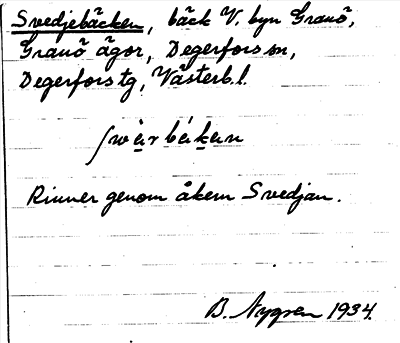 Svedjebäcken, bäck V. byn Granö,
Granö ägor, Degerfors sn,
Degerfors tg, Västerb. l.
Rinner genom åkern Svedjan.
B. Nygren 1934.